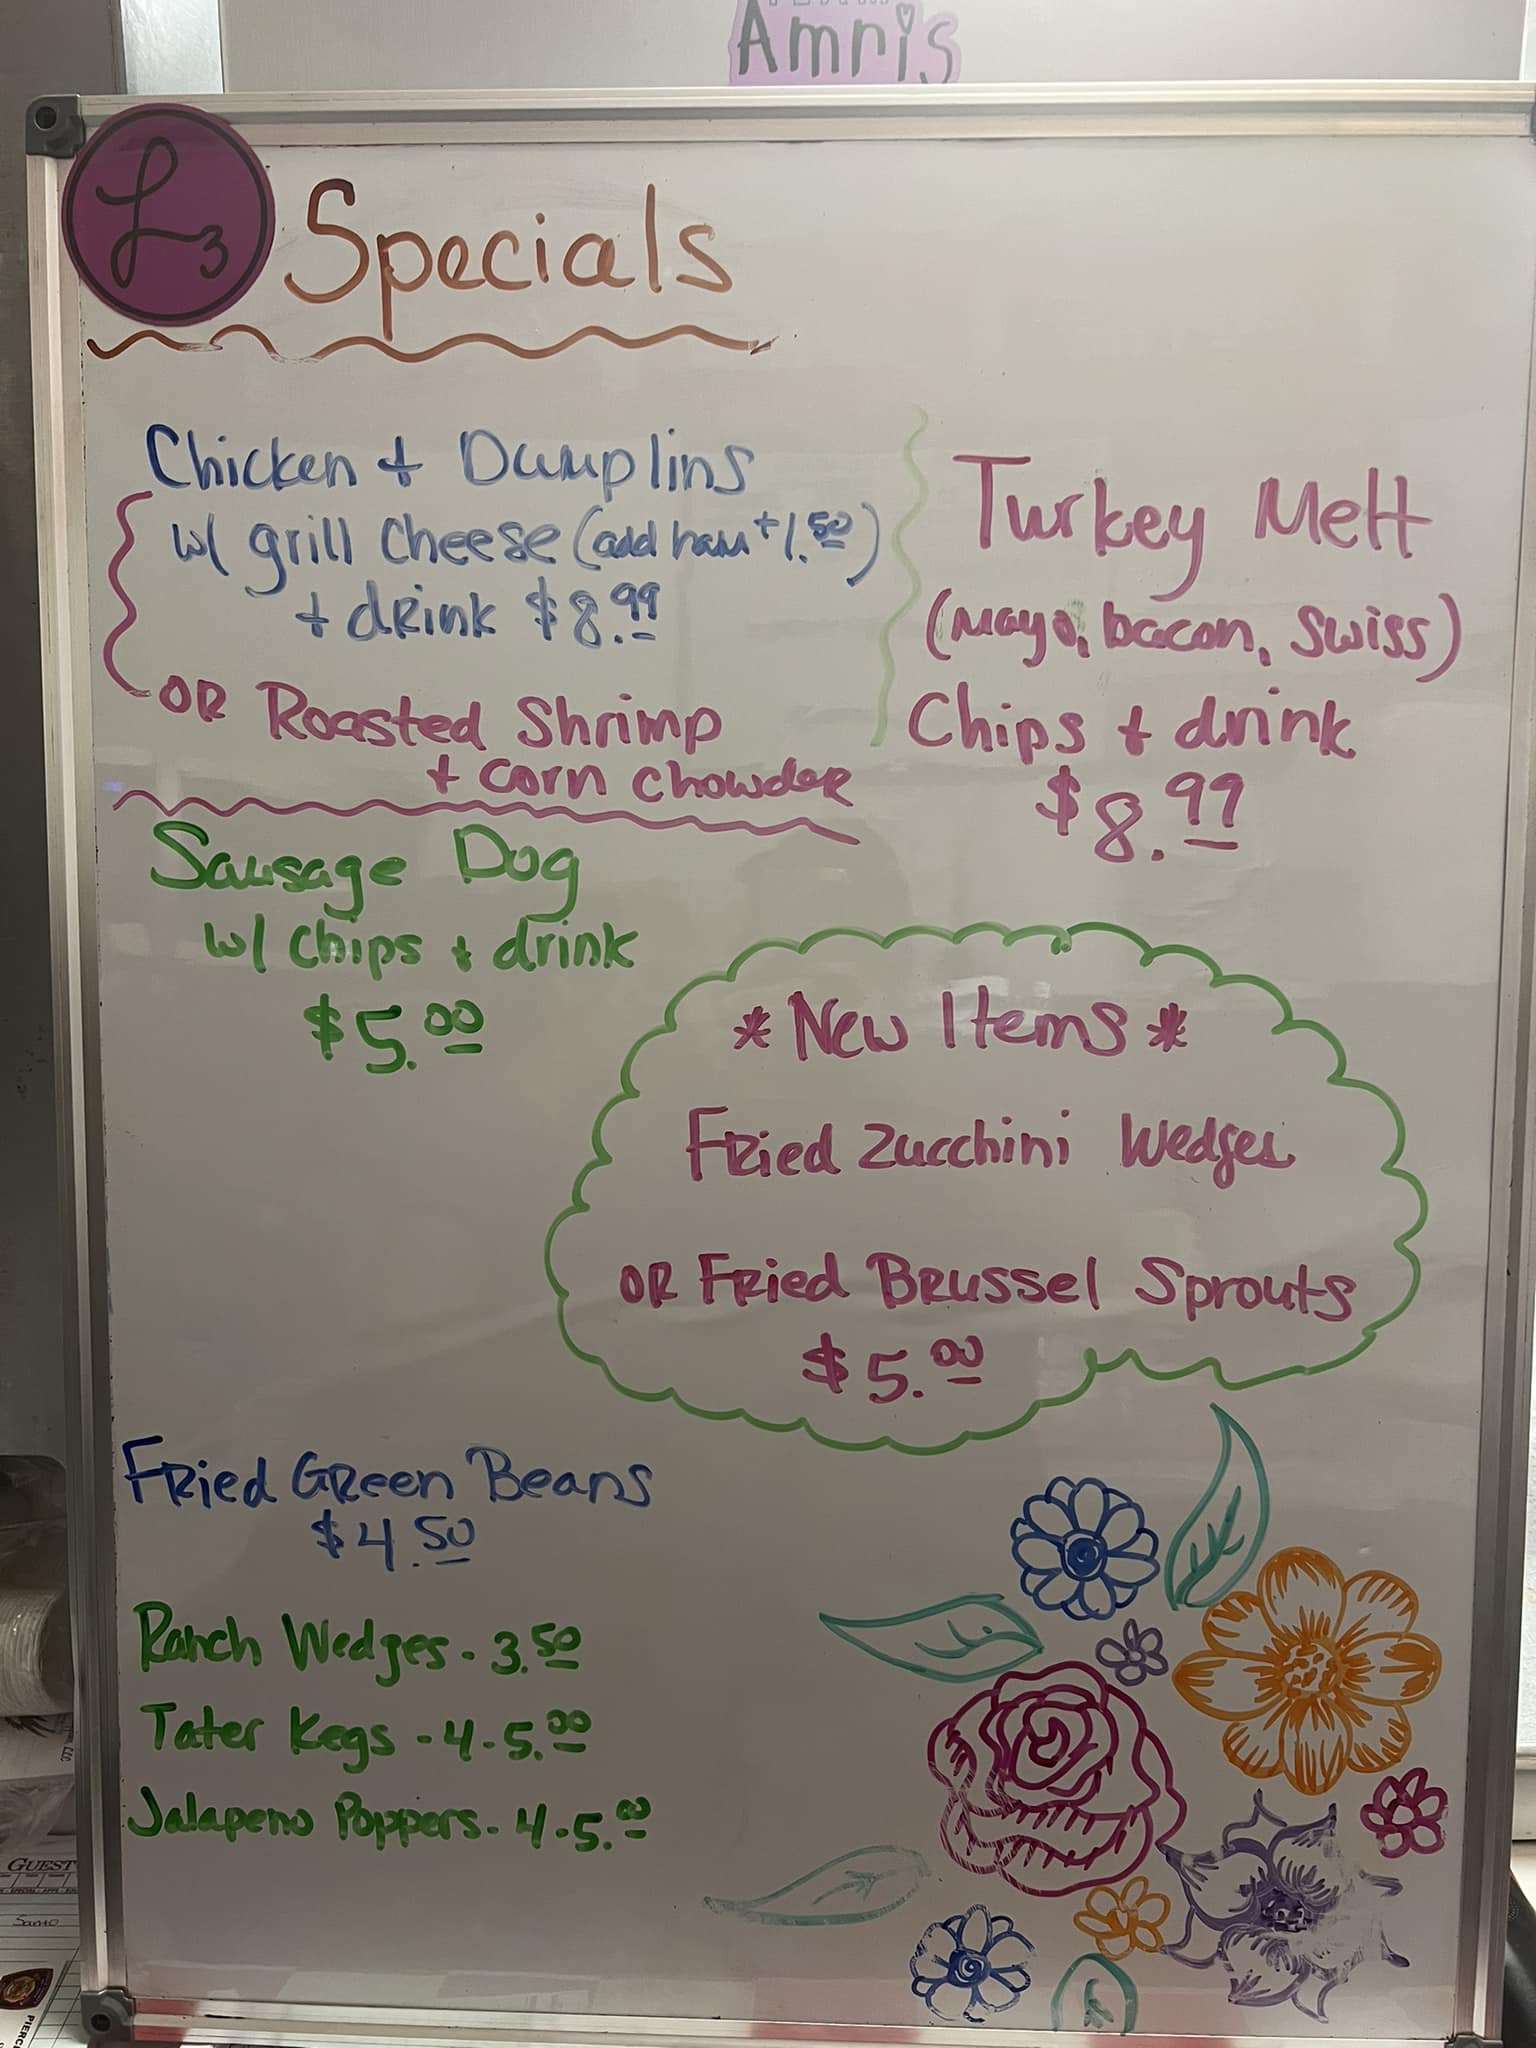 Amris
L3
Specials
Chicken + Dumplins
w/ grill cheese (add ham +1.50)
+ drink $8.99
OR Roasted Shrimp
+ corn chowder
Turkey Melt
(mayo, bacon, swiss)
Chips + drink
$8.99
Sausage Dog
w/ chips + drink
$5.00
*New Items*
Fried Zucchini Wedges
OR Fried Brussel Sprouts
$5.00
Fried Green Beans
$4.50
Ranch Wedges - 3.50
Tater Kegs - 4 - 5.00
Jalapeno Poppers - 4 - 5.00
GUEST
Santo